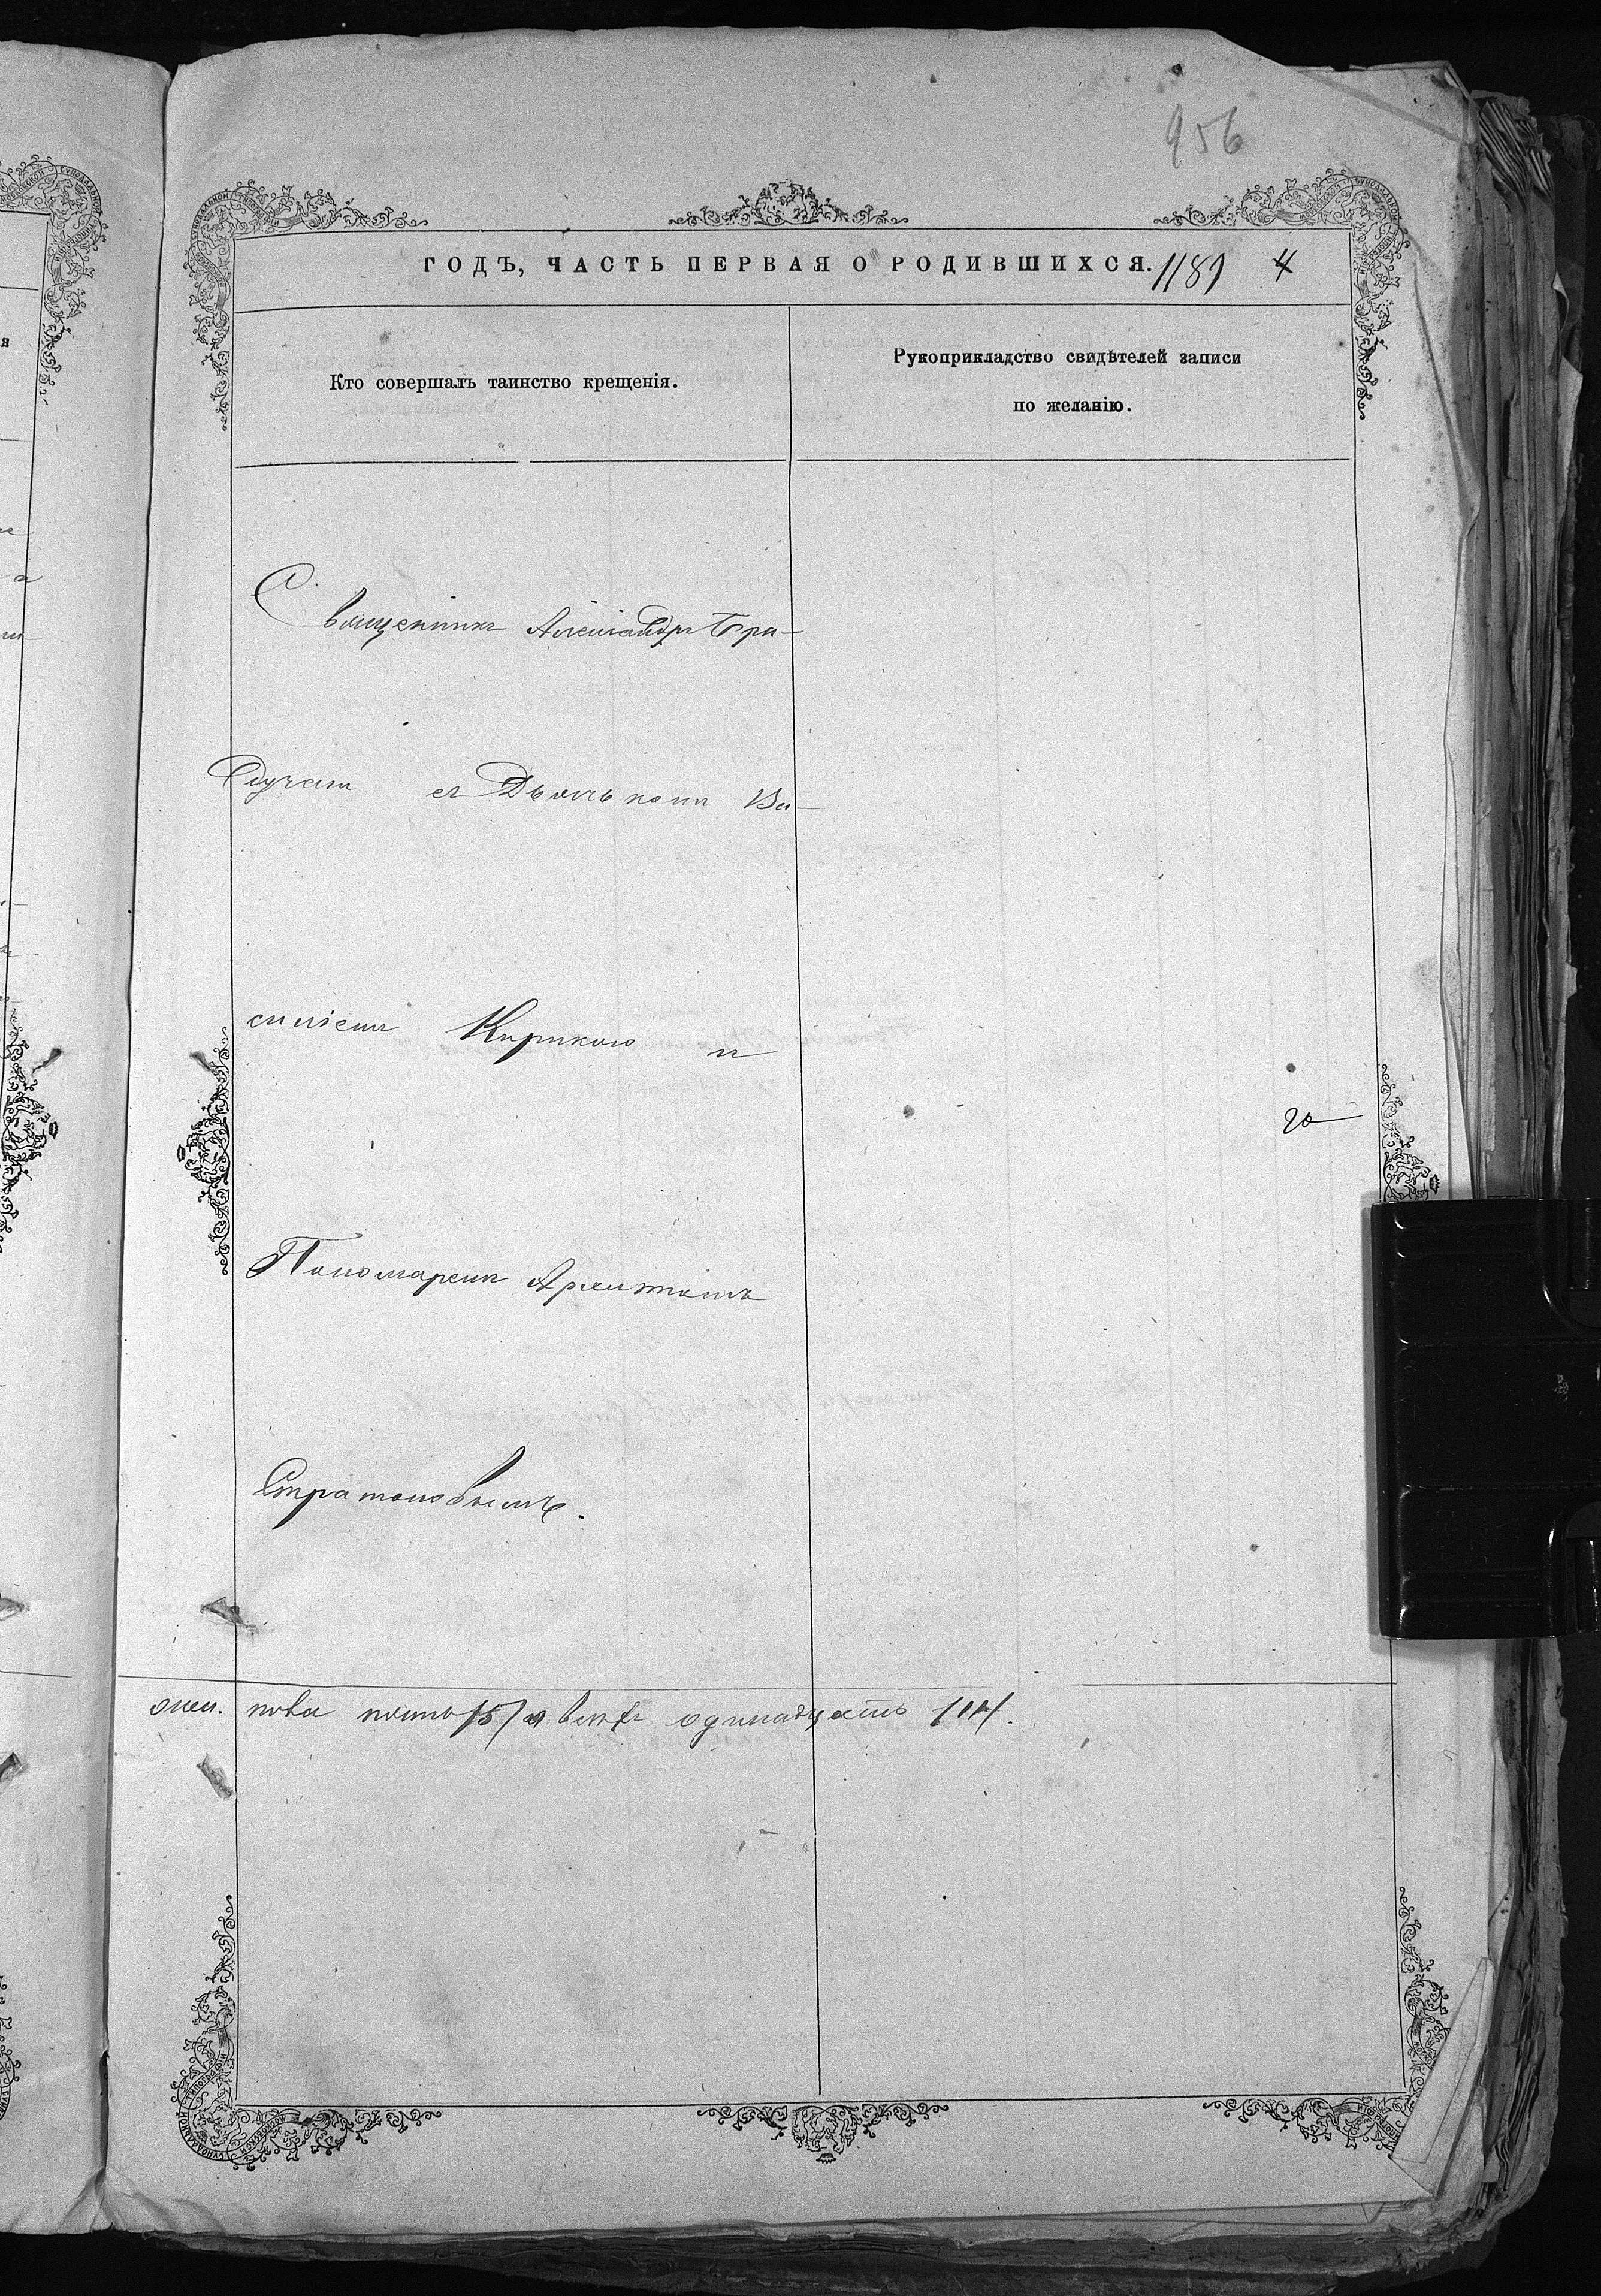 956
ГОДЪ, ЧАСТЬ ПЕРВАЯ О РОДИВШИХСЯ. 1181 4
Кто совершалъ таинство крещенія.
Рукоприкладство свидѣтелей записи
по желанію.
Священникъ Александръ Гра-
съ Дьячькомъ Ва-
силіемъ и
20
Пономаремъ
Стратоновымъ.
пола пять /5/ а всѣхъ одинадцать /11/.